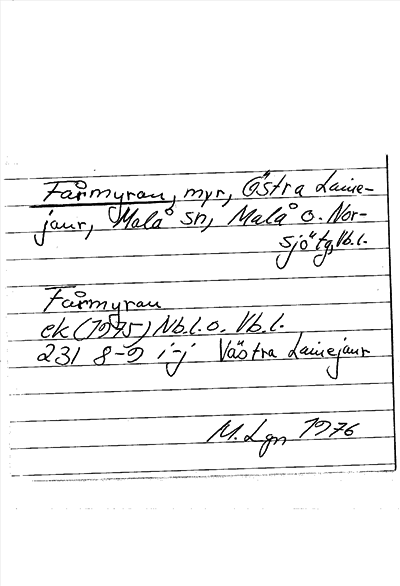 Fårmyran, myr, Östra Laine-
jaur, Malå sn, Malå o. Nor-
sjö tg, Vb.l.
Fårmyran
ek (1975) Nb.l. o. Vb.l.
231 8-9 i-j Västra Lainejaur
M. Lgn 1976